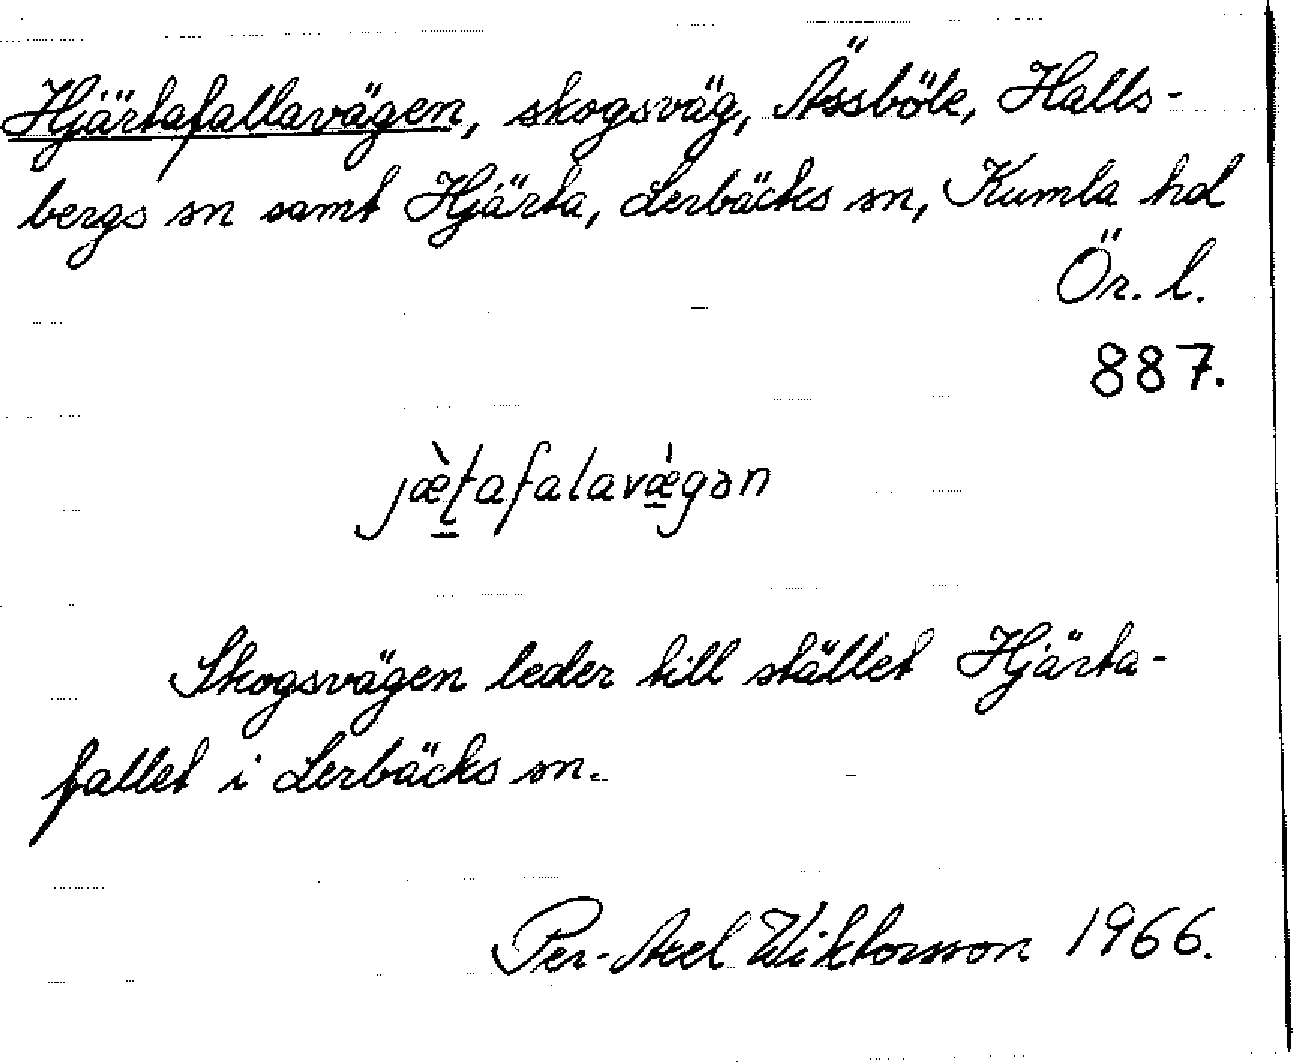 Hjärtafallavägen, skogsväg, Ässböle, Halls-
bergs sn samt Hjärta, Lerbäcks sn, Kumla hd
Ör. l.
887.
jæ̀ʈafalavǽgən
Skogsvägen leder till stället Hjärta-
fallet i Lerbäcks sn.
Per-Axel Wiktorsson 1966.